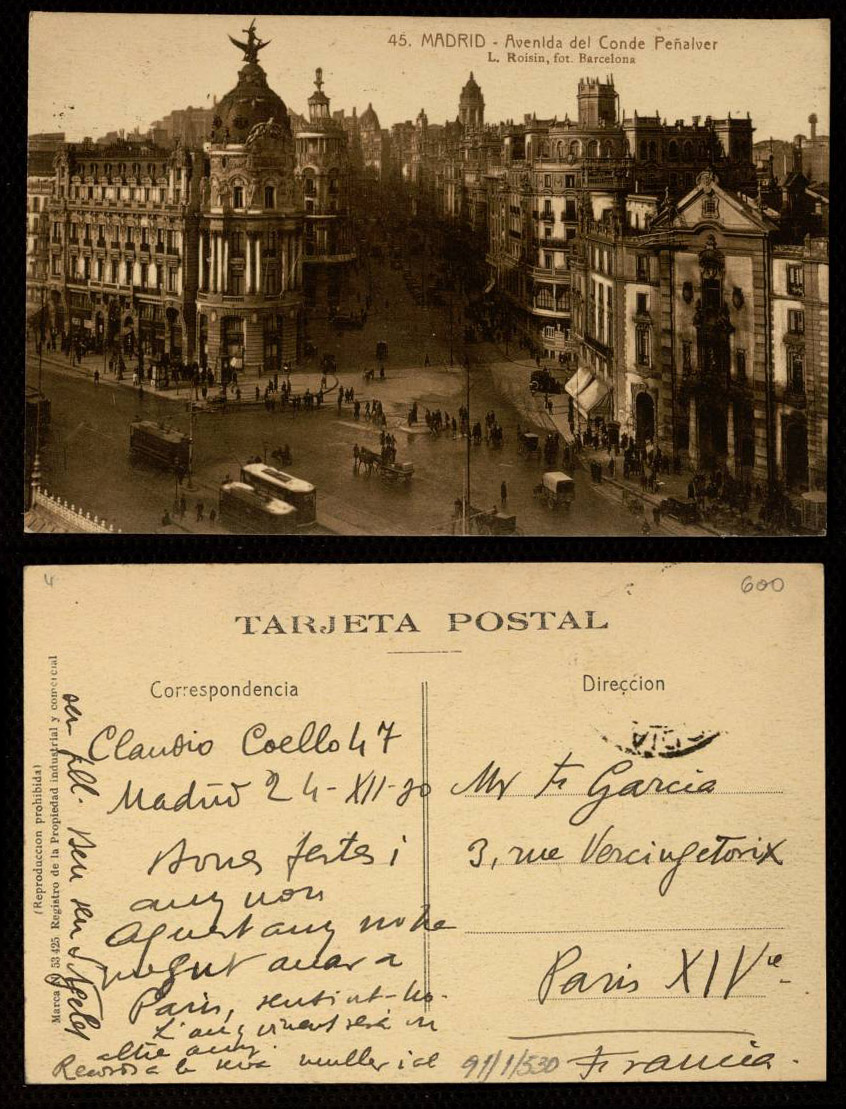 45. MADRID - Avenida del Conde Peñalver
L. Roisin, fot. Barcelona
4
600
TARJETA POSTAL
Correspondencia
Dirección
(Reproduccion prohibida)
Marca 53 425 Registro de la Propiedad industrial y comercial
Claudio Coello 47
Madrid 24-XII-30
Bones festes i
any nou
Aquest any no he
pogut anar a
Paris, sentint-ho.
L'any vinent será un
altre any.
Records a la teva muller i al
seu fill. Ben seu
Mr Fr Garcia
3, rue Vercingetorix
Paris XIVe
Francia.
91/1/530